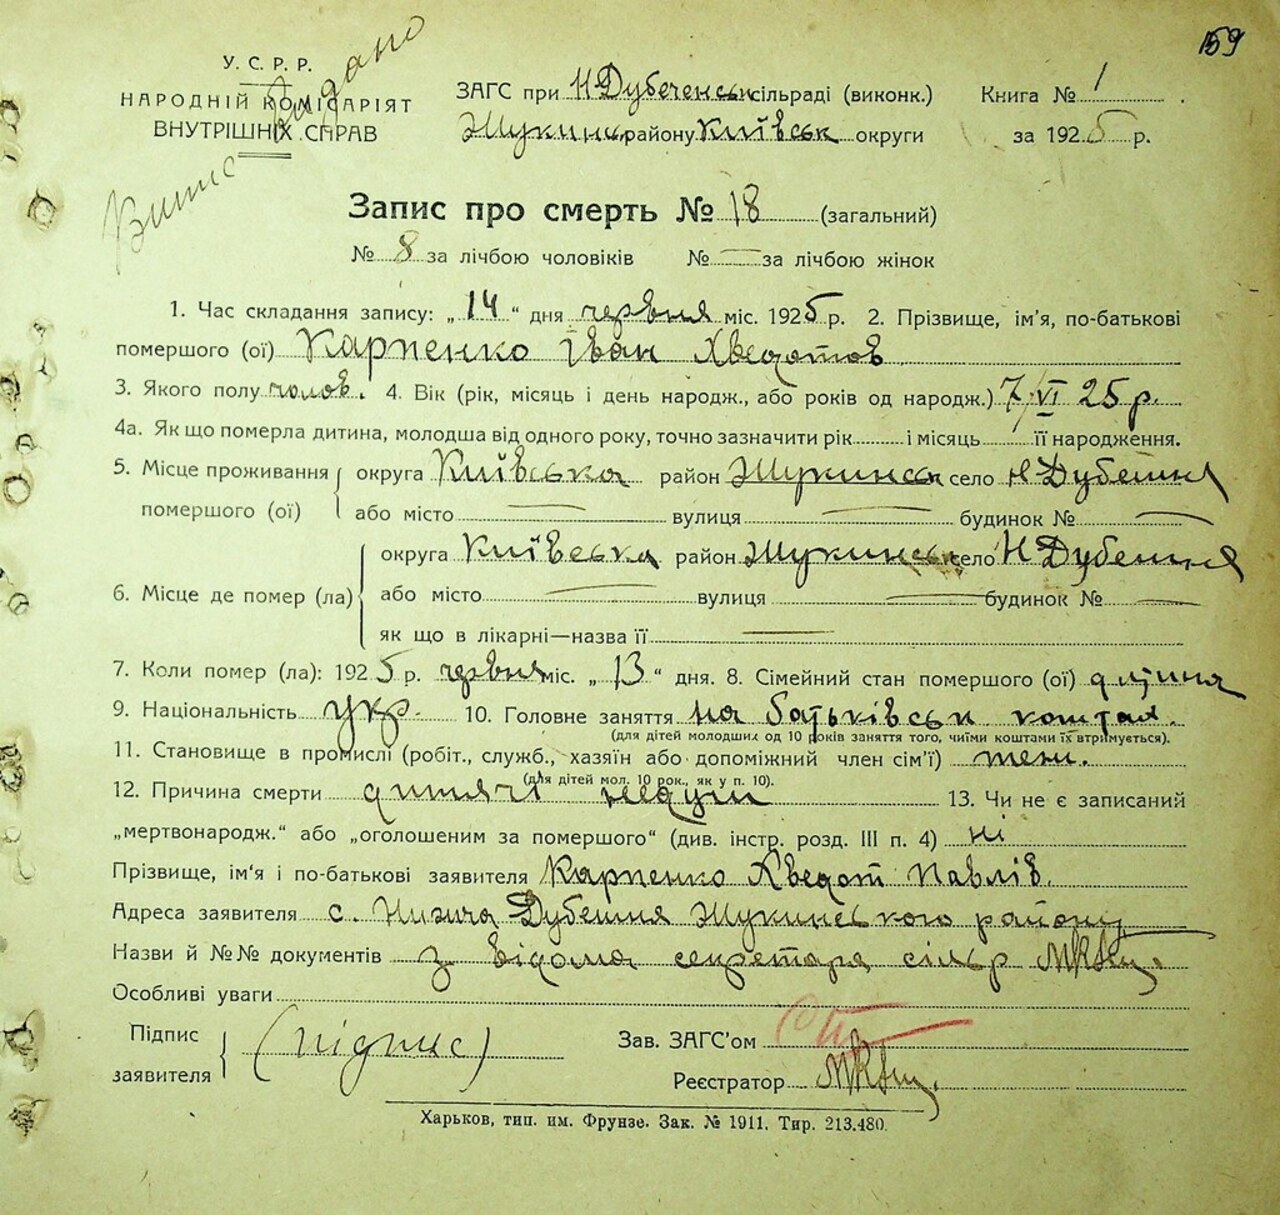 159
У. С. Р. Р.
НАРОДНІЙ КОМІСАРІЯТ
ВНУТРІШНІХ СПРАВ
Витис видано
ЗАГС при Н Дубеченськ сільраді (виконк.)
Жукинс. району Київськ округи
Книга № 1
за 1925 р.
Запис про смерть № 18 (загальний)
№ 8 за лічбою чоловіків № — за лічбою жінок
1. Час складання запису: „ 14 “ дня червня міс. 1925 р. 2. Прізвище, ім’я, по-батькові
помершого (ої) Карпенко Іван Хведотов
3. Якого полу чолов. 4. Вік (рік, місяць і день народж., або років од народж.) 7/VI 25 р.
4а. Як що померла дитина, молодша від одного року, точно зазначити рік і місяць її народження.
5. Місце проживання помершого (ої) округа Київська район Жукинськ село Н Дубешня
або місто — вулиця — будинок № —
6. Місце де помер (ла) округа Київська район Жукинськ село Н Дубешня
або місто — вулиця — будинок № —
як що в лікарні—назва її —
7. Коли помер (ла): 1925 р. червня міс. „ 13 “ дня. 8. Сімейний стан помершого (ої) дитина
9. Національність укр. 10. Головне заняття на батьківськ коштах.
(для дітей молодших од 10 років заняття того, чиїми коштами їх втримується).
11. Становище в промислі (робіт., служб., хазяїн або допоміжний член сім’ї) член.
(для дітей мол. 10 рок., як у п. 10).
12. Причина смерти дитячі 13. Чи не є записаний
„мертвонародж.“ або „оголошеним за помершого“ (див. інстр. розд. III п. 4) ні
Прізвище, ім’я і по-батькові заявителя Карпенко Хведот Павлів.
Адреса заявителя с. Нижча Дубешня Жукинського району
Назви й №№ документів з відома секретаря сільр
Особливі уваги
Підпис заявителя (підпис)
Зав. ЗАГС’ом
Реєстратор
Харьков, тип. им. Фрунзе. Зак. № 1911. Тир. 213.480.